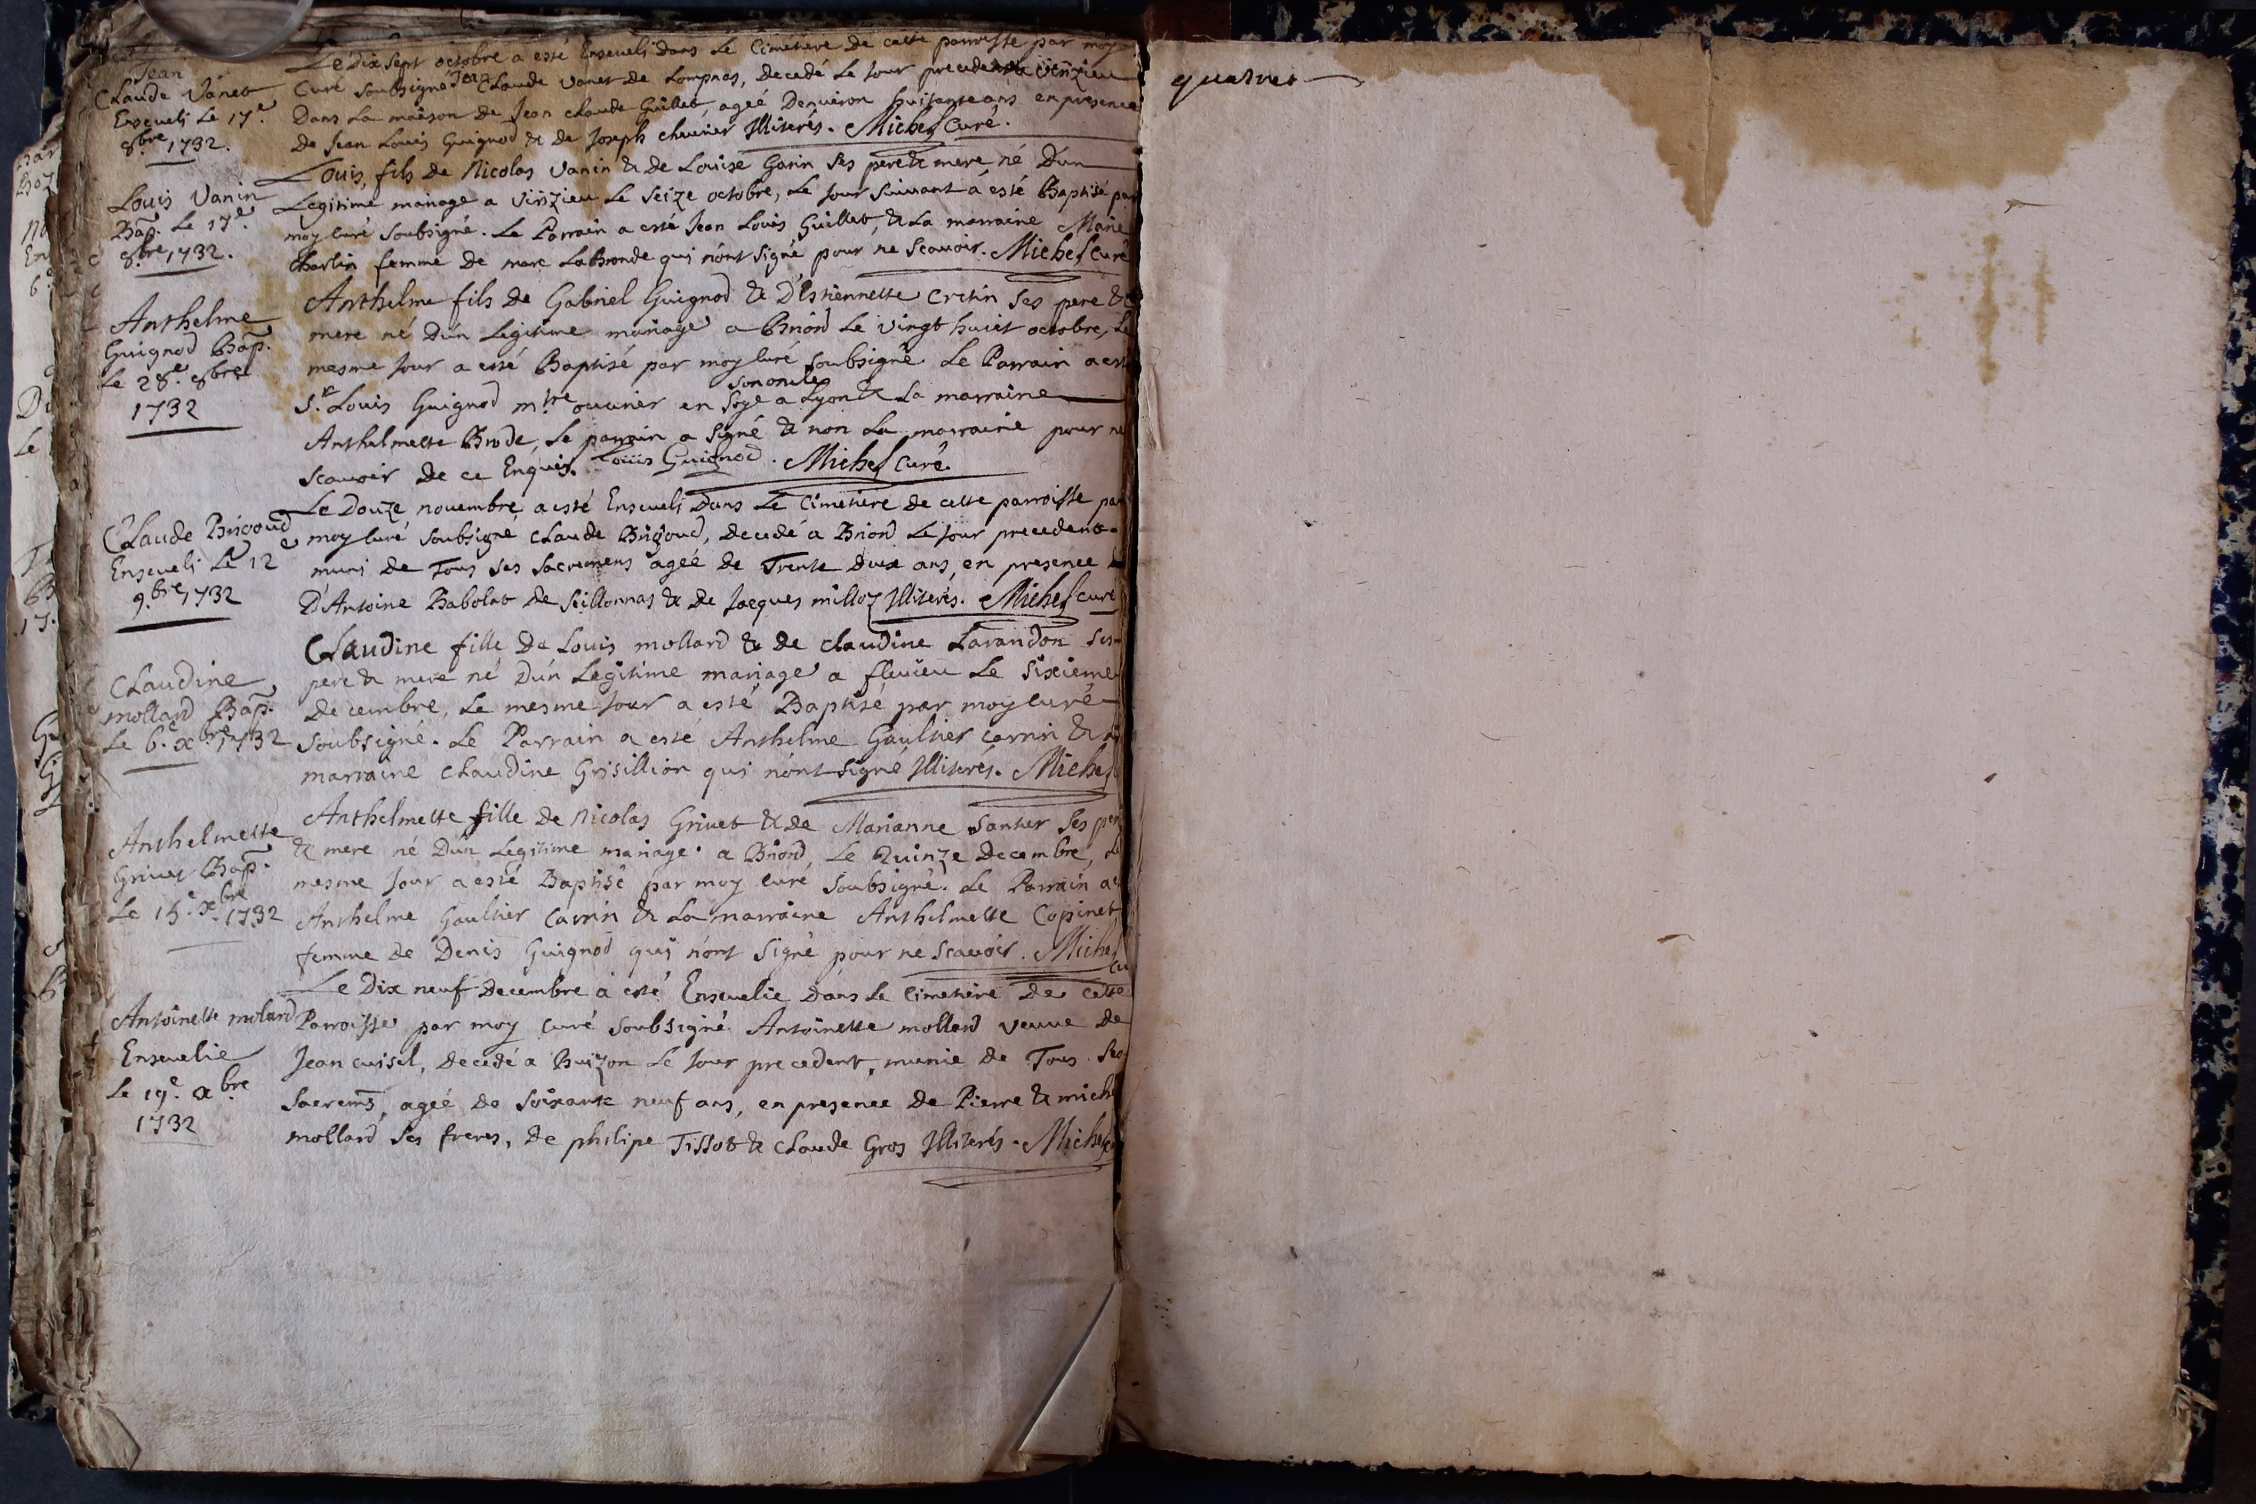 Jean
Claude Vanet
Enseveli Le 17.e
8.bre 1732.
Le Dix Sept octobre a esté Enseveli dans Le Cimetiere De cette parroisse par moy
Curé soubsigné Jean Claude Vanet de Lompnas, decedé Le Jour precedent a Virizieu
Dans La maison de Jean Claude Guillet, ageé Denuiron huitante ans en presence
de Jean Louis Guignod & de Joseph chevrier Illiterés. Michel Curé.
Louis Vanin
Bap. Le 17.e
8.bre 1732.
Louis, fils de Nicolas Vanin & de Louise Garin ses pere & mere, né D'un
Legitime mariage a Virizieu Le Seize octobre, Le Jour Suivant a esté Baptisé par
moy Curé Soubsigné. Le Parrain a esté Jean Louis Guillet, & La marraine Marie
Charlin femme de marc LaBronde qui n'ont signé pour ne Scauoir. Michel Curé
Anthelme
Guignod Bap.
Le 28.e 8bre
1732
Anthelme fils de Gabriel Guignod & D'Estiennette Cretin Ses pere &
mere né D'un Legitime mariage a Briord Le Vingt huict octobre, Le
mesme Jour a esté Baptisé par moy Curé Soubsigné. Le Parrain a esté
S.r Louis Guignod m.tre ouurier en Soye a Lyon son oncle & La marraine
Anthelmette Brode, Le parrain a Signé & non La marraine pour ne
Scauoir de ce Enquis. Louis Guignod. Michel Curé.
Claude Brigoud
Enseveli Le 12 e
9.bre 1732
Le Douze novembre a esté Enseveli Dans Le Cimetiere de cette parroisse par
moy Curé Soubsigné Claude Brigoud, decedé a Briord Le Jour precedent
muni de Tous Ses Sacremens ageé de Trente Deux ans, en presence
D'Antoine Babolat de Seillonnas & de Jacques milloz Illiterés. Michel Curé
Claudine
mollard Bap.
Le 6.e x.bre 1732
Claudine fille de Louis mollard & de Claudine Larandon Ses
pere & mere né D'un Legitime mariage a fleuieu Le Sixieme
Decembre, Le mesme Jour a esté Baptisé par moy Curé
Soubsigné. Le Parrain a esté Anthelme Gaultier Carrin & La
marraine Claudine Grisillion qui n'ont Signé Illiterés. Michel
Anthelmette
Grivet Bap.
Le 15.e x.bre 1732
Anthelmette fille de Nicolas Grivet & de Marianne Santer Ses pere
& mere né D'un Legitime mariage a Briord, Le Quinze Decembre, Le
mesme Jour a esté Baptisé par moy Curé Soubsigné. Le Parrain a
Anthelme Gaultier Carrin & La marraine Anthelmette Copinet
femme de Denis Guignod qui n'ont Signé pour ne Scauoir. Michel Cu
Antoinette molard
Ensevelie
Le 19.e x.bre
1732
Le Dix neuf Decembre a esté Ensevelie dans Le Cimetiere De cette
Parroisse par moy Curé Soubsigné Antoinette mollard veuve de
Jean cuisel, decedé a Buizon Le Jour precedent, munie de Tous Ses
Sacrem.s, ageé de Soixante neuf ans, en presence De Pierre & miche
mollard Ses freres, de philipe Tissot & Claude Gros Illiterés. Michel